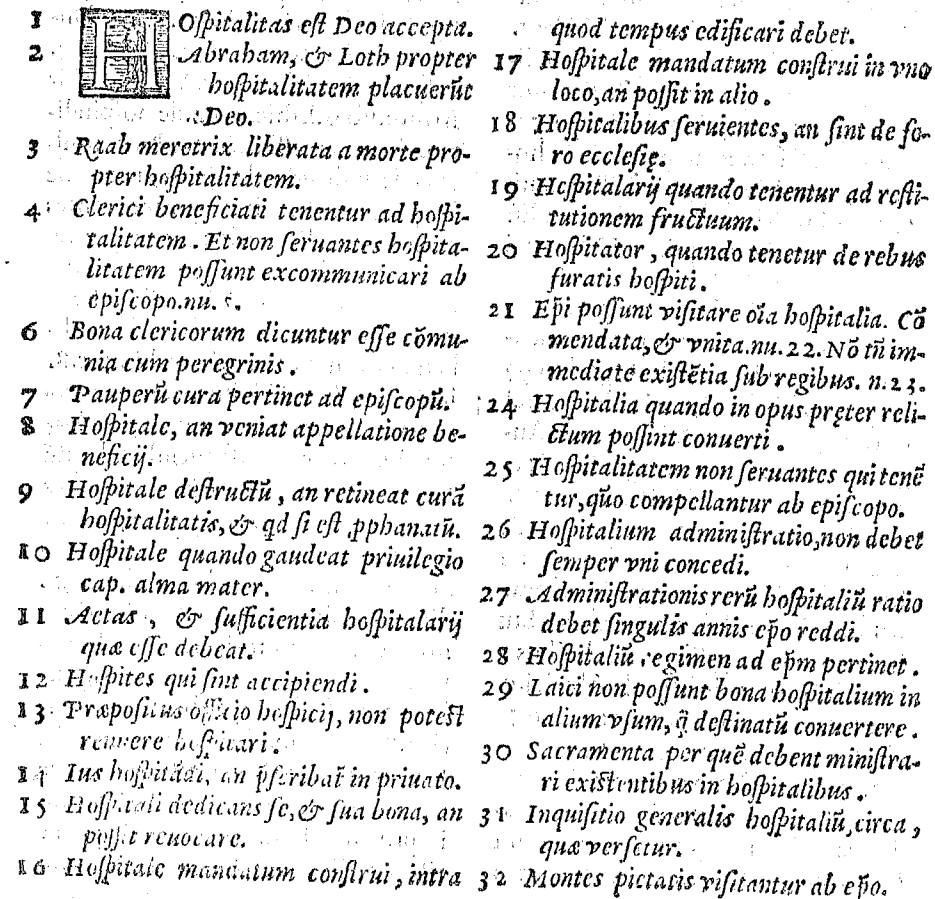 1 HOſpitalitas eſt Deo accepta.
2 Abraham, & Loth propter
hoſpitalitatem placuerũt
Deo.
3 Raab meretrix liberata a morte pro-
pter hoſpitalitatem.
4 Clerici beneficiati tenentur ad hoſpi-
talitatem. Et non ſeruantes hoſpita-
litatem poſſunt excommunicari ab
epiſcopo.nu. 5.
6 Bona clericorum dicuntur eſſe cõmu-
nia cum peregrinis.
7 Pauperũ cura pertinet ad epiſcopũ.
8 Hoſpitale, an veniat appellatione be-
neficij.
9 Hoſpitale deſtructũ, an retineat curã
hoſpitalitatis, & qd ſi eſt pphanatũ.
10 Hoſpitale quando gaudeat priuilegio
cap. alma mater.
11 Aetas, & ſufficientia hoſpitalarij
quæ eſſe debeat.
12 Hoſpites qui ſint accipiendi.
13 Præpoſitus officio hoſpicij, non poteſt
renuere hoſpitari.
14 Ius hoſpitãdi, an p̃ſcribat̃ in priuato.
15 Hoſpitali dedicans ſe, & ſua bona, an
poſſit reuocare.
16 Hoſpitale mandatum conſtrui, intra
quod tempus edificari debet.
17 Hoſpitale mandatum conſtrui in vno
loco, an poſſit in alio.
18 Hoſpitalibus ſeruientes, an ſint de fo-
ro eccleſię.
19 Hoſpitalarij quando tenentur ad reſti-
tutionem fructuum.
20 Hoſpitator, quando tenetur de rebus
furatis hoſpiti.
21 Ep̃i poſſunt viſitare oĩa hoſpitalia. Cõ
mendata, & vnita.nu.22. Nõ tñ im-
mediate exiſtẽtia ſub regibus. n.23.
24 Hoſpitalia quando in opus pręter reli-
ctum poſſint conuerti.
25 Hoſpitalitatem non ſeruantes qui tenẽ
tur, quõ compellantur ab epiſcopo.
26 Hoſpitalium adminiſtratio, non debet
ſemper vni concedi.
27 Adminiſtrationis rerũ hoſpitaliũ ratio
debet ſingulis annis ep̃o reddi.
28 Hoſpitaliũ regimen ad ep̃m pertinet.
29 Laici non poſſunt bona hoſpitalium in
alium vſum, q̃ deſtinatũ conuertere.
30 Sacramenta per quẽ debent miniſtra-
ri exiſtentibus in hoſpitalibus.
31 Inquiſitio generalis hoſpitaliũ, circa,
quæ verſetur.
32 Montes pietatis viſitantur ab ep̃o.